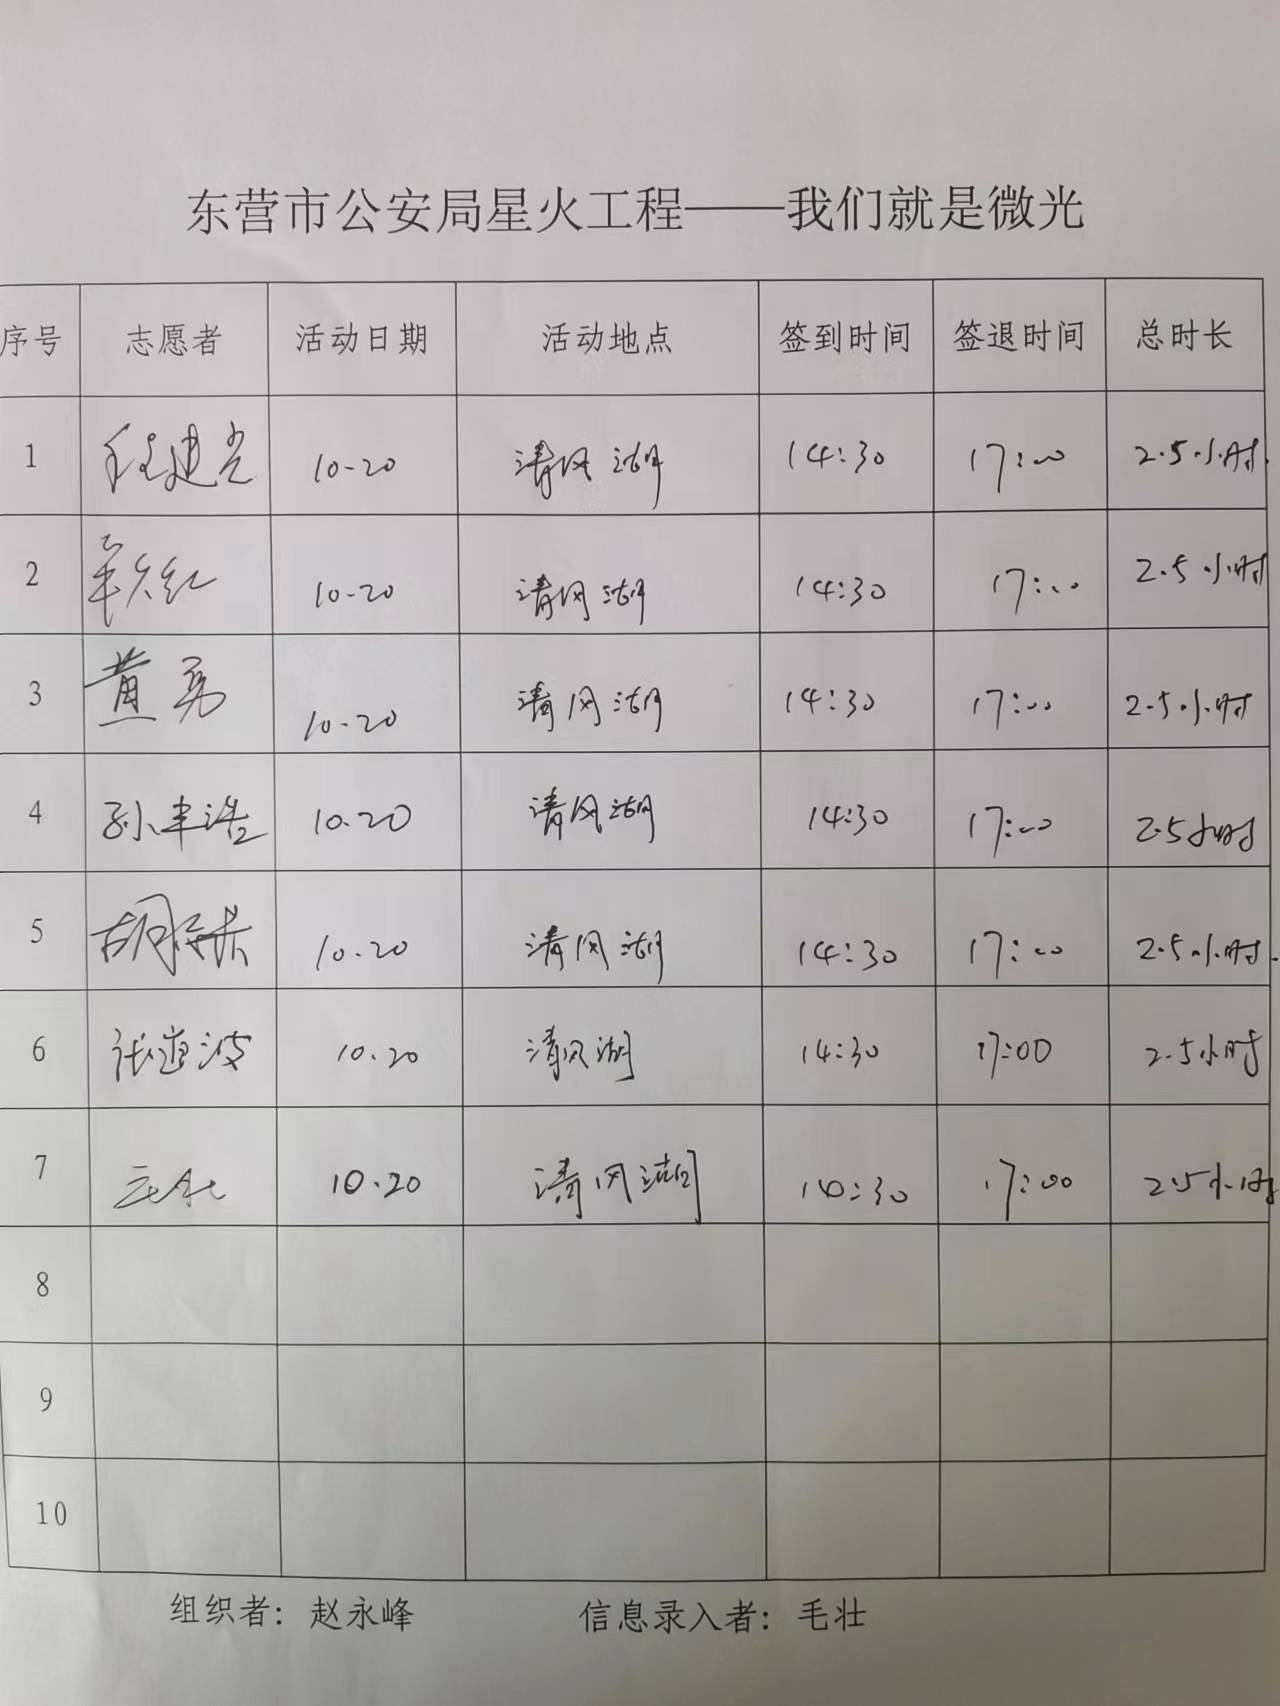 东营市公安局星火工程——我们就是微光
序号 志愿者 活动日期 活动地点 签到时间 签退时间 总时长
1 程建光 10-20 清风湖 14:30 17:00 2.5小时
2 10-20 清风湖 14:30 17:00 2.5小时
3 黄勇 10-20 清风湖 14:30 17:00 2.5小时
4 孙丰浩 10.20 清风湖 14:30 17:00 2.5小时
5 胡 10.20 清风湖 14:30 17:00 2.5小时
6 张道波 10.20 清风湖 14:30 17:00 2.5小时
7 10.20 清风湖 :30 17:00 2.5小时
8
9
10
组织者：赵永峰 信息录入者：毛壮